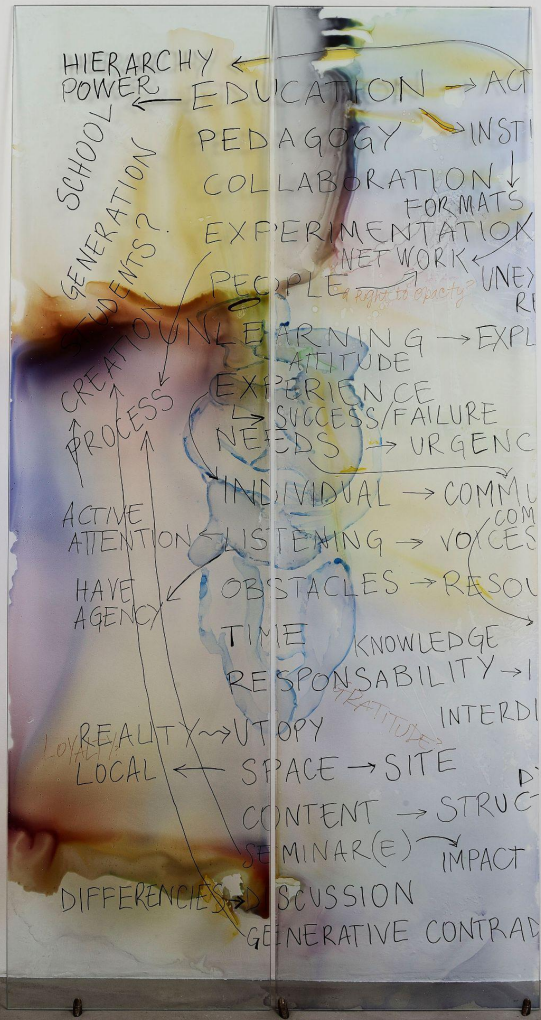 HIERARCHY
POWER ← EDUCATION → ACT
SCHOOL
PEDAGOGY → INSTI
COLLABORATION
FORMATS
GENERATION
STUDENTS?
EXPERIMENTATION
NETWORK
PEOPLE → UNEX
a right to opacity?
RE
CREATION
UNLEARNING → EXPL
ATTITUDE
EXPERIENCE
↳ SUCCESS/FAILURE
PROCESS
NEEDS → URGENC
INDIVIDUAL → COMMU
COM
ACTIVE
ATTENTION LISTENING → VOICES
HAVE
AGENCY
OBSTACLES → RESOU
TIME
KNOWLEDGE
RESPONSABILITY → I
GRATITUDE?
INTERDI
LOYALTY?
REALITY ⇝ UTOPY
LOCAL ← SPACE → SITE
CONTENT → STRUC
SEMINAR(E)
IMPACT
DIFFERENCIES → DISCUSSION
GENERATIVE CONTRAD